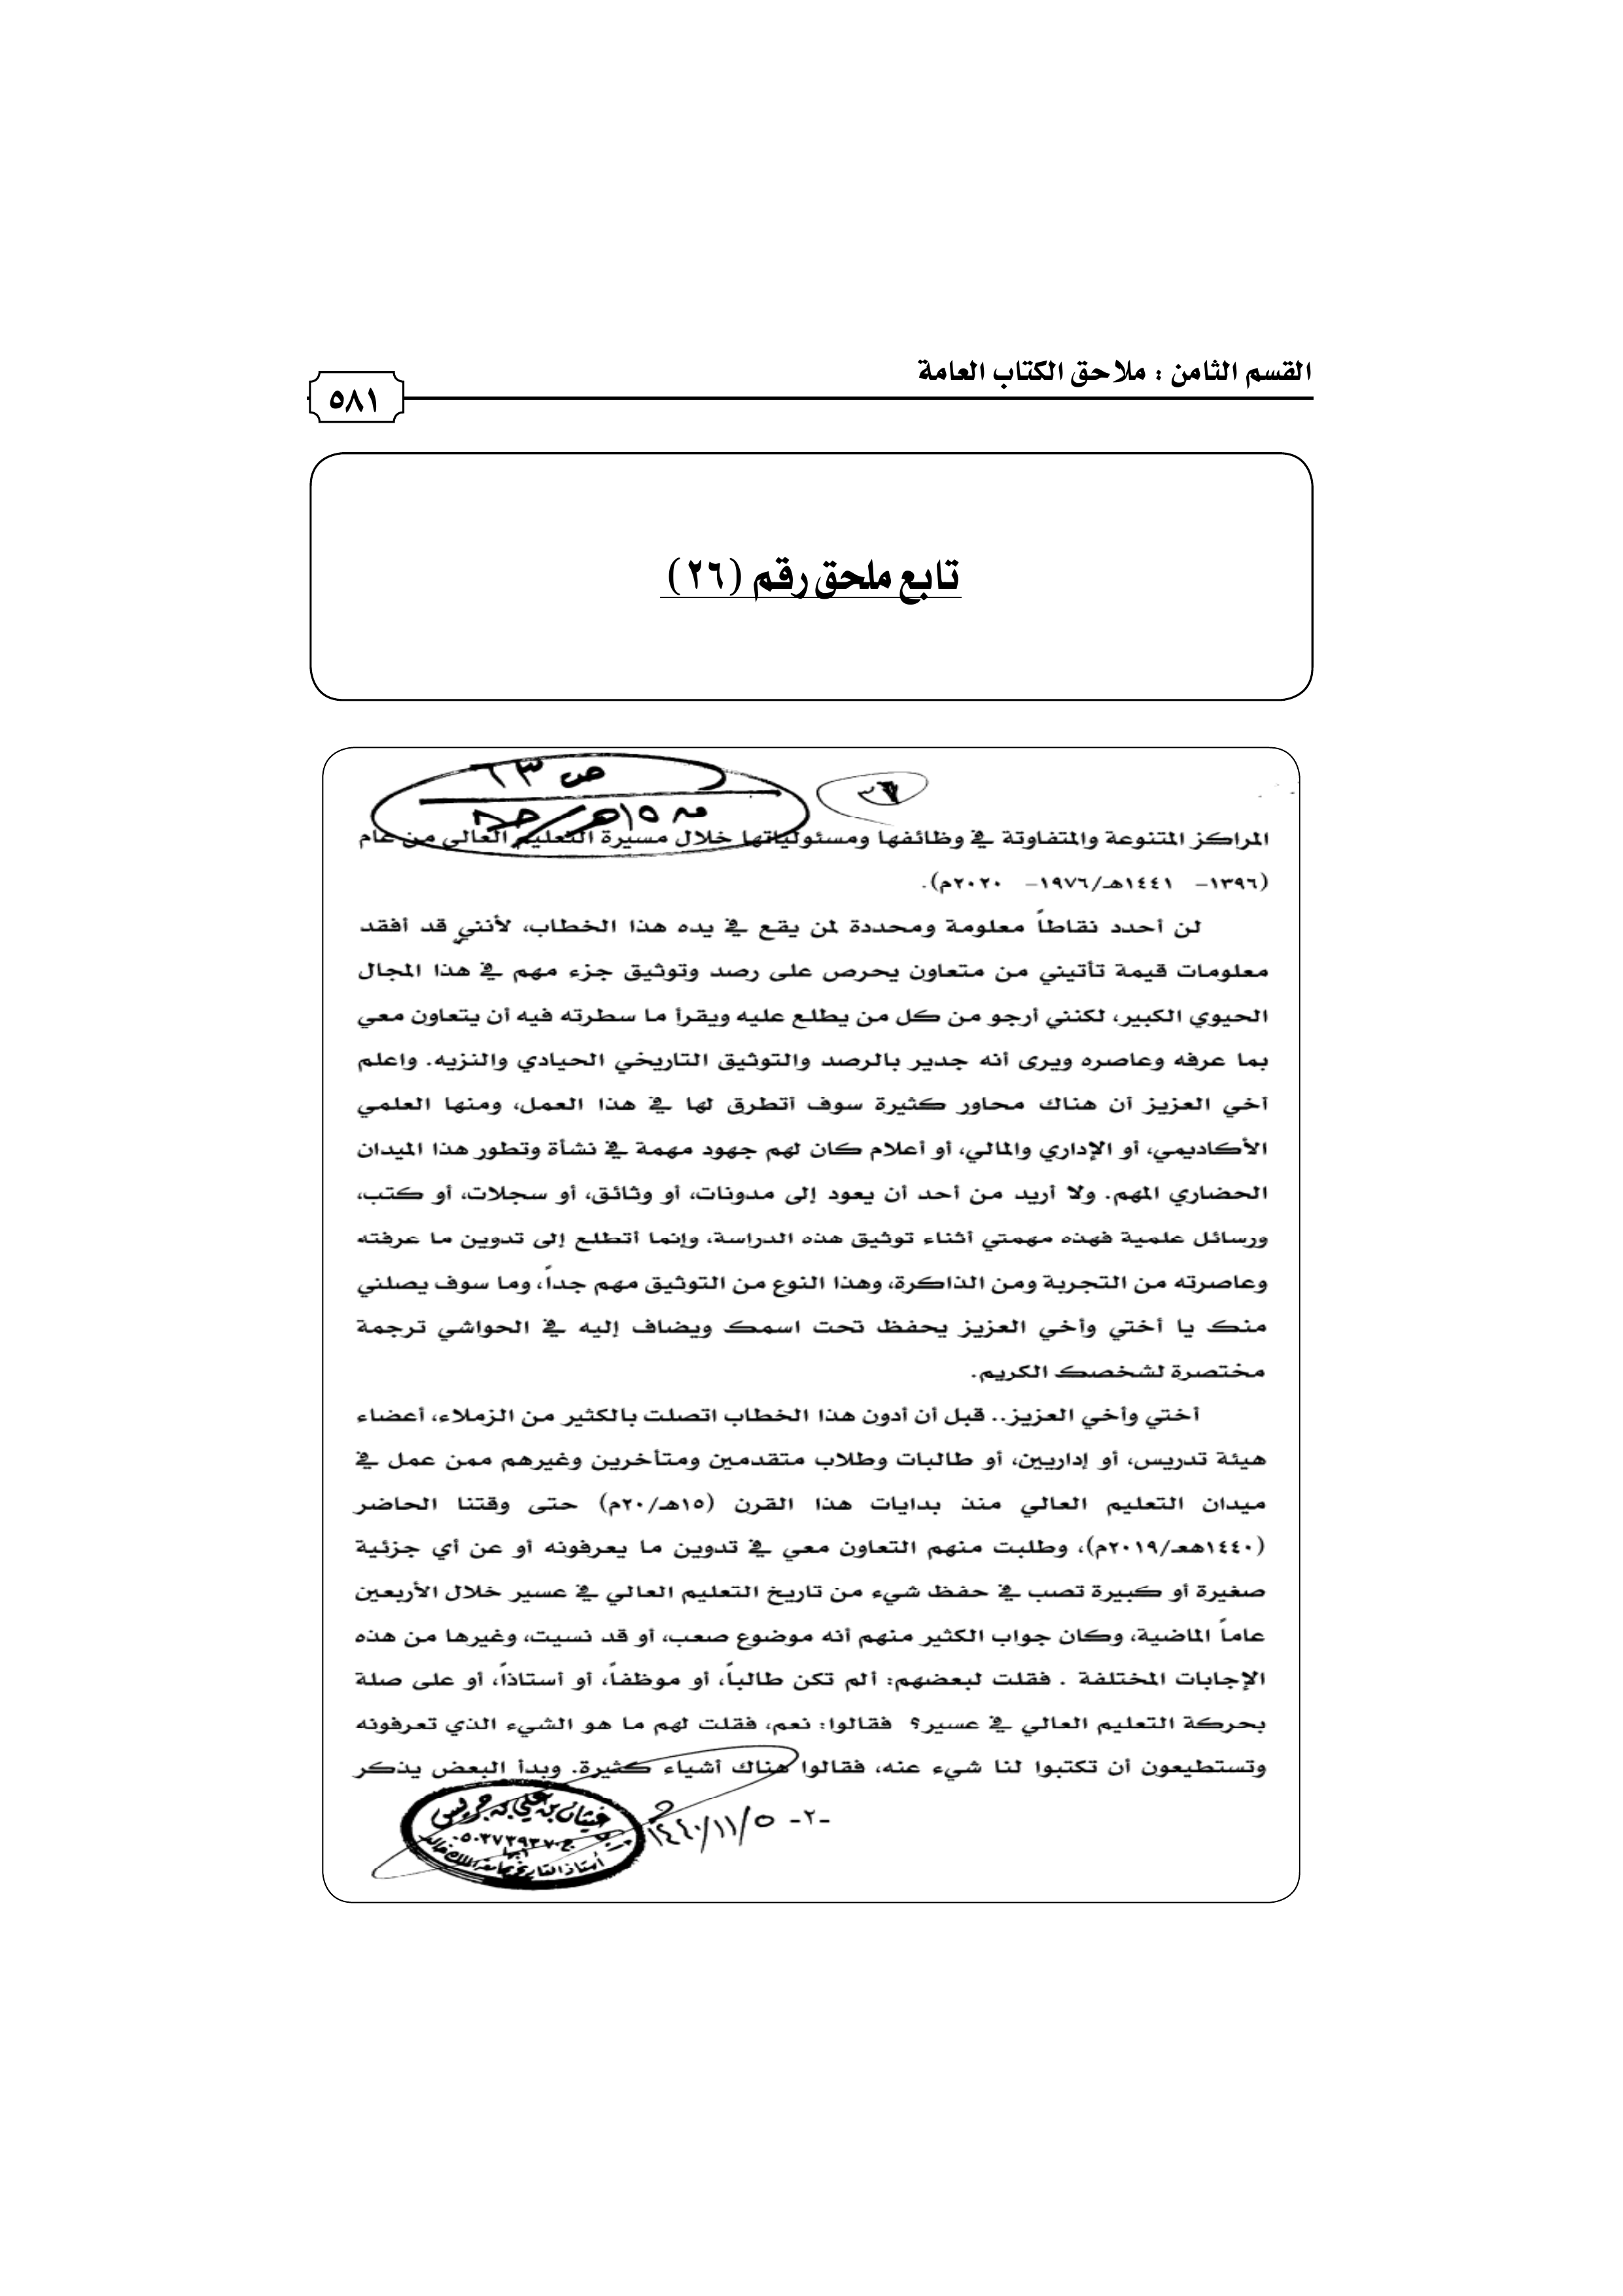 القسم الثامن : ملاحق الكتاب العامة
٥٨١
تابع ملحق رقم (٢٦)
ص ٦٣
المراكز المتنوعة والمتفاوتة في وظائفها ومسئولياتها خلال مسيرة التعليم العالي من عام
(١٣٩٦- ١٤٤١هـ/١٩٧٦- ٢٠٢٠م).
لن أحدد نقاطاً معلومة ومحددة لمن يقع في يده هذا الخطاب، لأنني قد أفقد
معلومات قيمة تأتيني من متعاون يحرص على رصد وتوثيق جزء مهم في هذا المجال
الحيوي الكبير، لكنني أرجو من كل من يطلع عليه ويقرأ ما سطرته فيه أن يتعاون معي
بما عرفه وعاصره ويرى أنه جدير بالرصد والتوثيق التاريخي الحيادي والنزيه. واعلم
أخي العزيز أن هناك محاور كثيرة سوف أتطرق لها في هذا العمل، ومنها العلمي
الأكاديمي، أو الإداري والمالي، أو أعلام كان لهم جهود مهمة في نشأة وتطور هذا الميدان
الحضاري المهم. ولا أريد من أحد أن يعود إلى مدونات، أو وثائق، أو سجلات، أو كتب،
ورسائل علمية فهذه مهمتي أثناء توثيق هذه الدراسة، وإنما أتطلع إلى تدوين ما عرفته
وعاصرته من التجربة ومن الذاكرة، وهذا النوع من التوثيق مهم جداً، وما سوف يصلني
منك يا أختي وأخي العزيز يحفظ تحت اسمك ويضاف إليه في الحواشي ترجمة
مختصرة لشخصك الكريم.
أختي وأخي العزيز.. قبل أن أدون هذا الخطاب اتصلت بالكثير من الزملاء، أعضاء
هيئة تدريس، أو إداريين، أو طالبات وطلاب متقدمين ومتأخرين وغيرهم ممن عمل في
ميدان التعليم العالي منذ بدايات هذا القرن (١٥هـ/٢٠م) حتى وقتنا الحاضر
(١٤٤٠هعـ/٢٠١٩م)، وطلبت منهم التعاون معي في تدوين ما يعرفونه أو عن أي جزئية
صغيرة أو كبيرة تصب في حفظ شيء من تاريخ التعليم العالي في عسير خلال الأربعين
عاماً الماضية، وكان جواب الكثير منهم أنه موضوع صعب، أو قد نسيت، وغيرها من هذه
الإجابات المختلفة . فقلت لبعضهم: ألم تكن طالباً، أو موظفاً، أو أستاذاً، أو على صلة
بحركة التعليم العالي في عسير؟ فقالوا: نعم، فقلت لهم ما هو الشيء الذي تعرفونه
وتستطيعون أن تكتبوا لنا شيء عنه، فقالوا هناك أشياء كثيرة. وبدأ البعض يذكر
-٢- ١٤٤٠/١١/٥
غيثان بن علي بن جريس
أستاذ التاريخ بجامعة الملك خالد